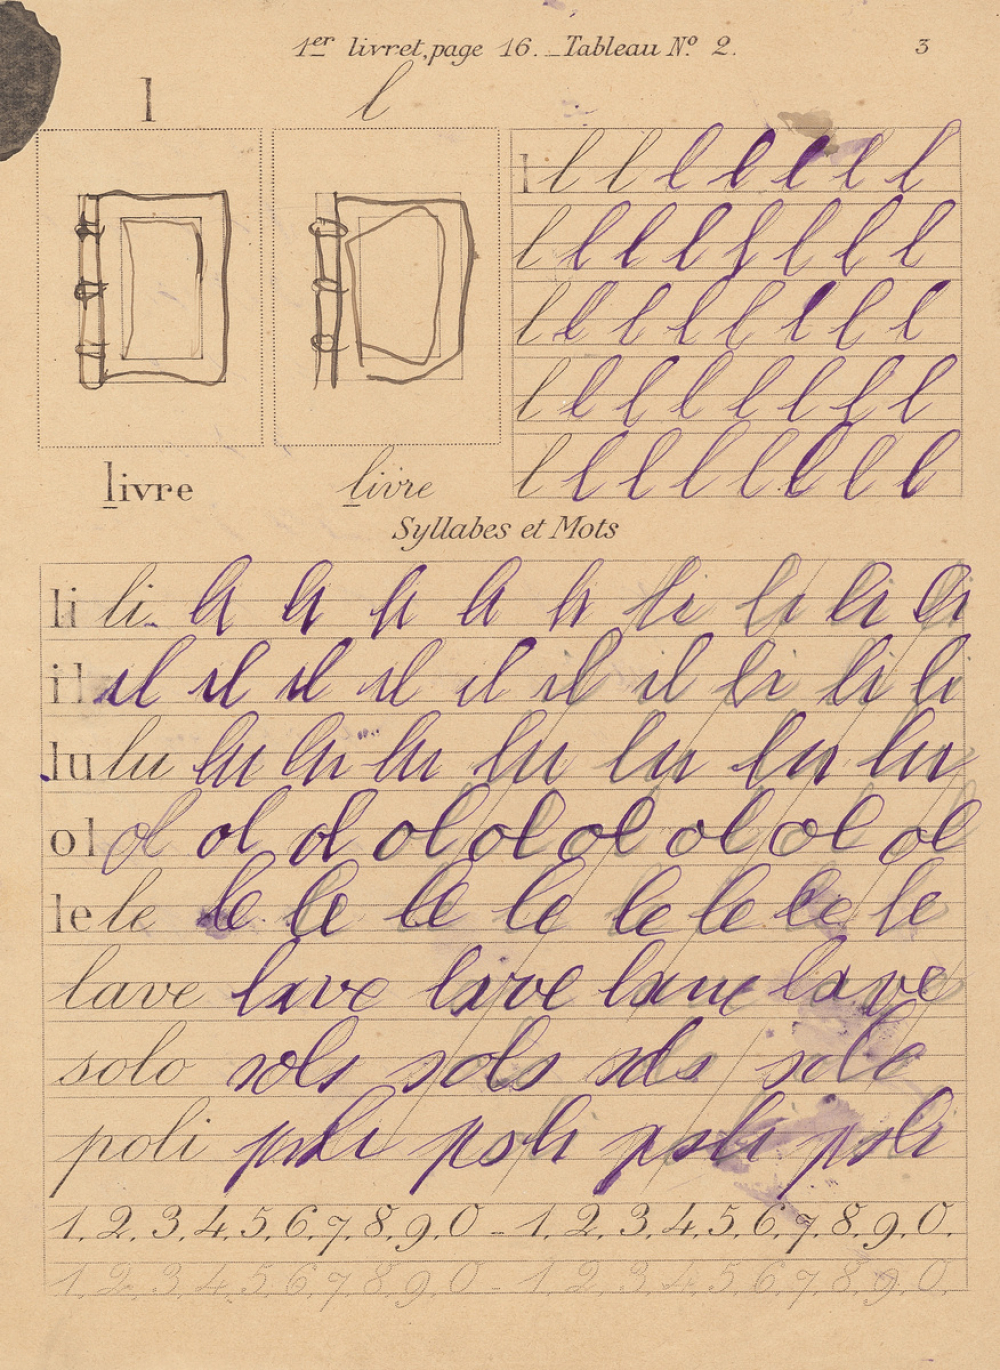 1er livret, page 16. _ Tableau No. 2. 3
l l
l l l l l l l l
l l l l l l l l
l l l l l l l l
l l l l l l l l
l l l l l l l l
livre livre
Syllabes et Mots
li li li li li li li li li li li
il il il il il il il il li li li
lu lu lu lu lu lu lu lu lu
ol ol ol ol ol ol ol ol ol ol
le le le le le le le le le le
lave lave lave lave lave
solo solo solo solo solo
poli poli poli poli poli
1. 2. 3. 4. 5. 6. 7. 8. 9. 0 _ 1. 2. 3. 4. 5. 6. 7. 8. 9. 0.
1. 2. 3. 4. 5. 6. 7. 8. 9. 0 _ 1. 2. 3. 4. 5. 6. 7. 8. 9. 0.